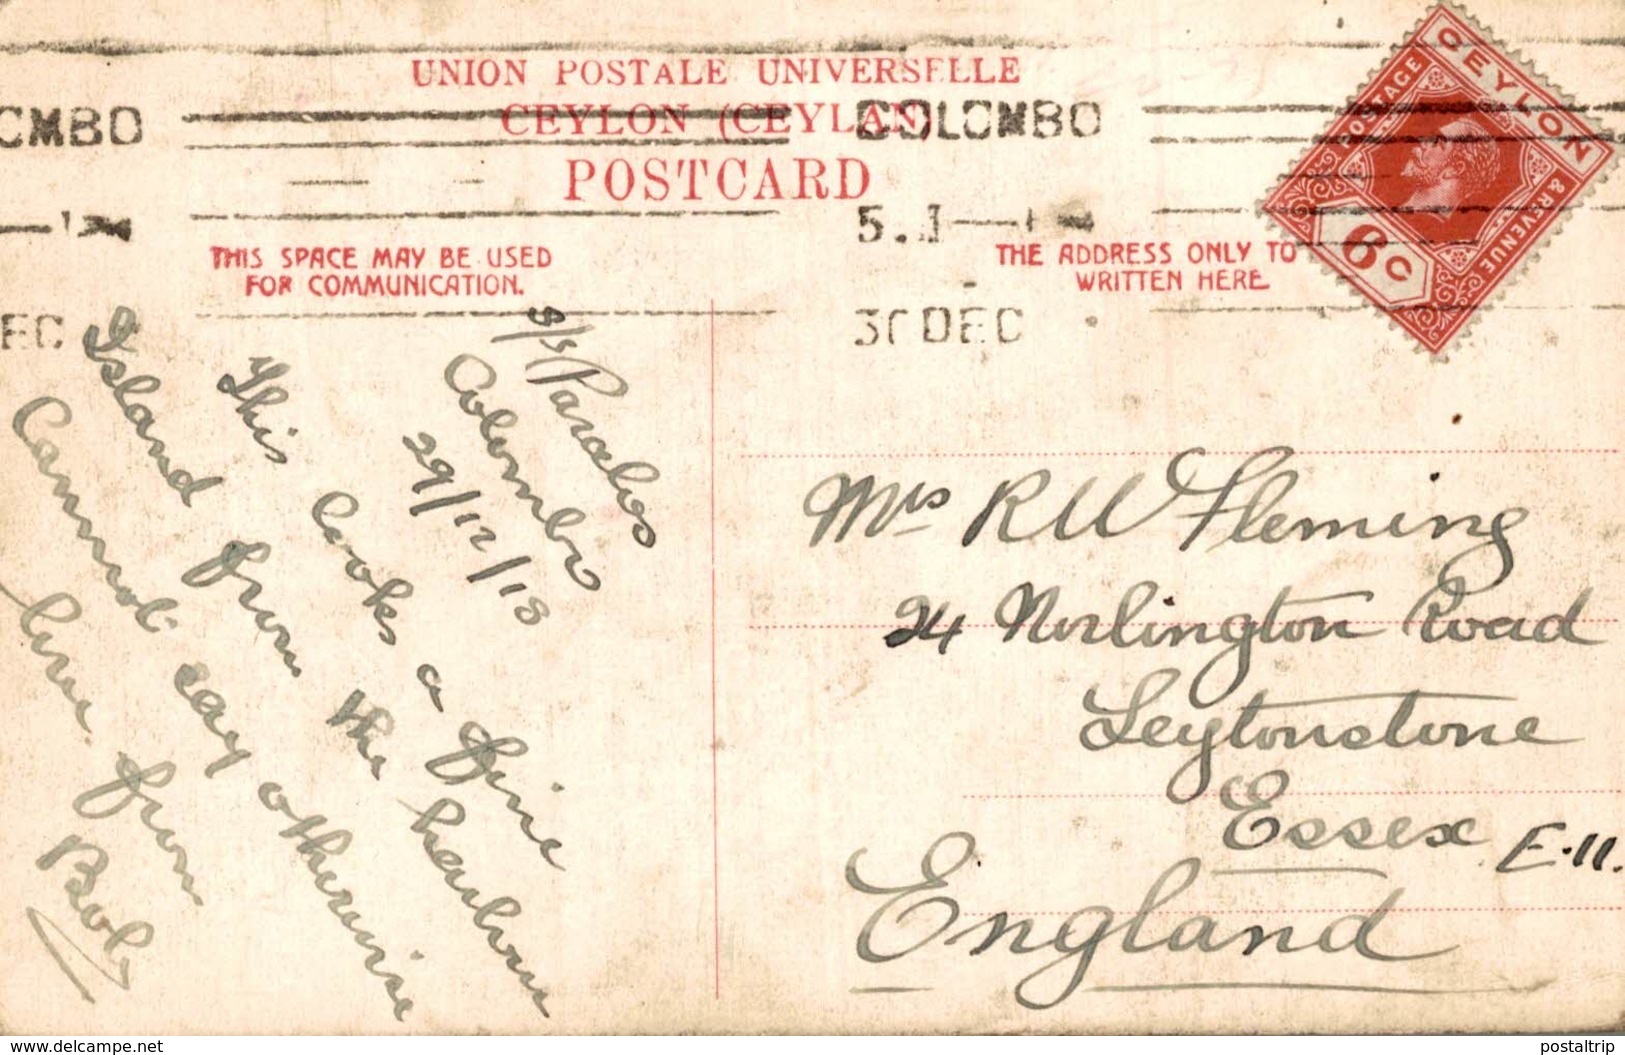 UNION POSTALE UNIVERSELLE
CEYLON (CEYLAN)
POSTCARD
OMBO
COLOMBO
CEYLON
POSTAGE
& REVENUE
6 C
5.
30 DEC
EC
THIS SPACE MAY BE USED
FOR COMMUNICATION.
THE ADDRESS ONLY TO
WRITTEN HERE
S/S
Colombo
29/12/18
This looks a fine
Island from the harbour
Cannot say otherwise
love from
Bob
Mrs R W Fleming
24 Norlington Road
Leytonstone
Essex E.11.
England
www.delcampe.net
postaltrip